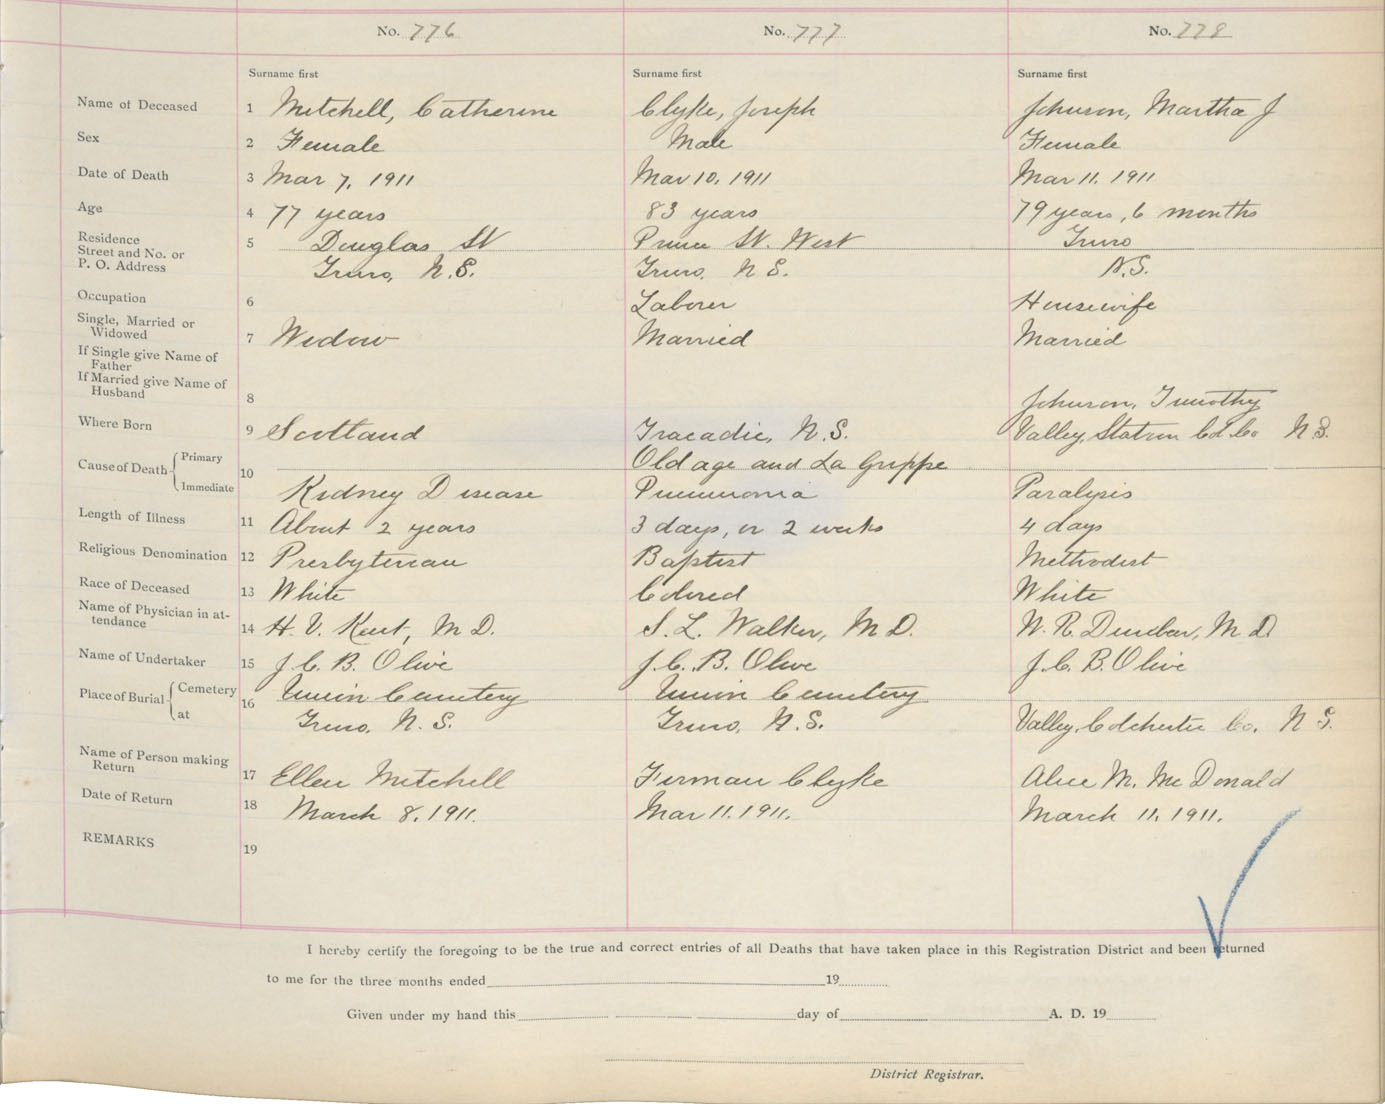 No. 776 No. 777 No. 778
Surname first Surname first Surname first
Name of Deceased 1 Mitchell, Catherine Clyke, Joseph Johnson, Martha J
Sex 2 Female Male Female
Date of Death 3 Mar 7, 1911 Mar 10, 1911 Mar 11. 1911
Age 4 77 years 83 years 79 years, 6 months
Residence
Street and No. or
P. O. Address
5 Douglas St Prince St. West Truro
Truro, N.S. Truro, N S. N.S.
Occupation 6 Laborer Housewife
Single, Married or
Widowed 7 Widow Married Married
If Single give Name of
Father
If Married give Name of
Husband 8 Johnson, Timothy
Where Born 9 Scotland Tracadie, N.S. Valley Station Col. Co N.S.
Cause of Death Primary 10 Old age and La Grippe
Immediate Kidney Disease Pneumonia Paralysis
Length of Illness 11 About 2 years 3 days, or 2 weeks 4 days
Religious Denomination 12 Presbyterian Baptist Methodist
Race of Deceased 13 White Colored White
Name of Physician in at-
tendance 14 H. V. Kent, M D. S. L. Walker, M D. W. R. Dunbar, M D
Name of Undertaker 15 J. C. B. Olive J. C. B. Olive J. C. B. Olive
Place of Burial Cemetery 16 Union Cemetery Union Cemetery
at Truro, N. S. Truro, N. S. Valley, Colchester Co. N S.
Name of Person making
Return 17 Ellen Mitchell Firman Clyke Alice M. McDonald
Date of Return 18 March 8, 1911. Mar 11. 1911. March 11, 1911.
REMARKS 19
I hereby certify the foregoing to be the true and correct entries of all Deaths that have taken place in this Registration District and been returned
to me for the three months ended 19
Given under my hand this day of A. D. 19
District Registrar.